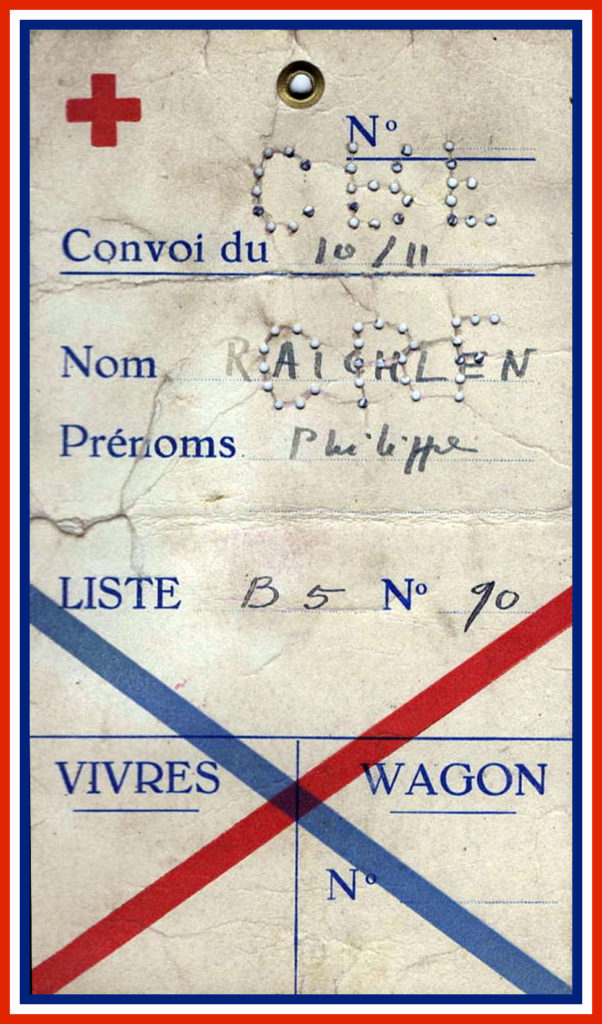 Nº
Convoi du 10/11
Nom RAICHLEN
Prénoms Philippe
LISTE B5 Nº 90
VIVRES
WAGON
Nº